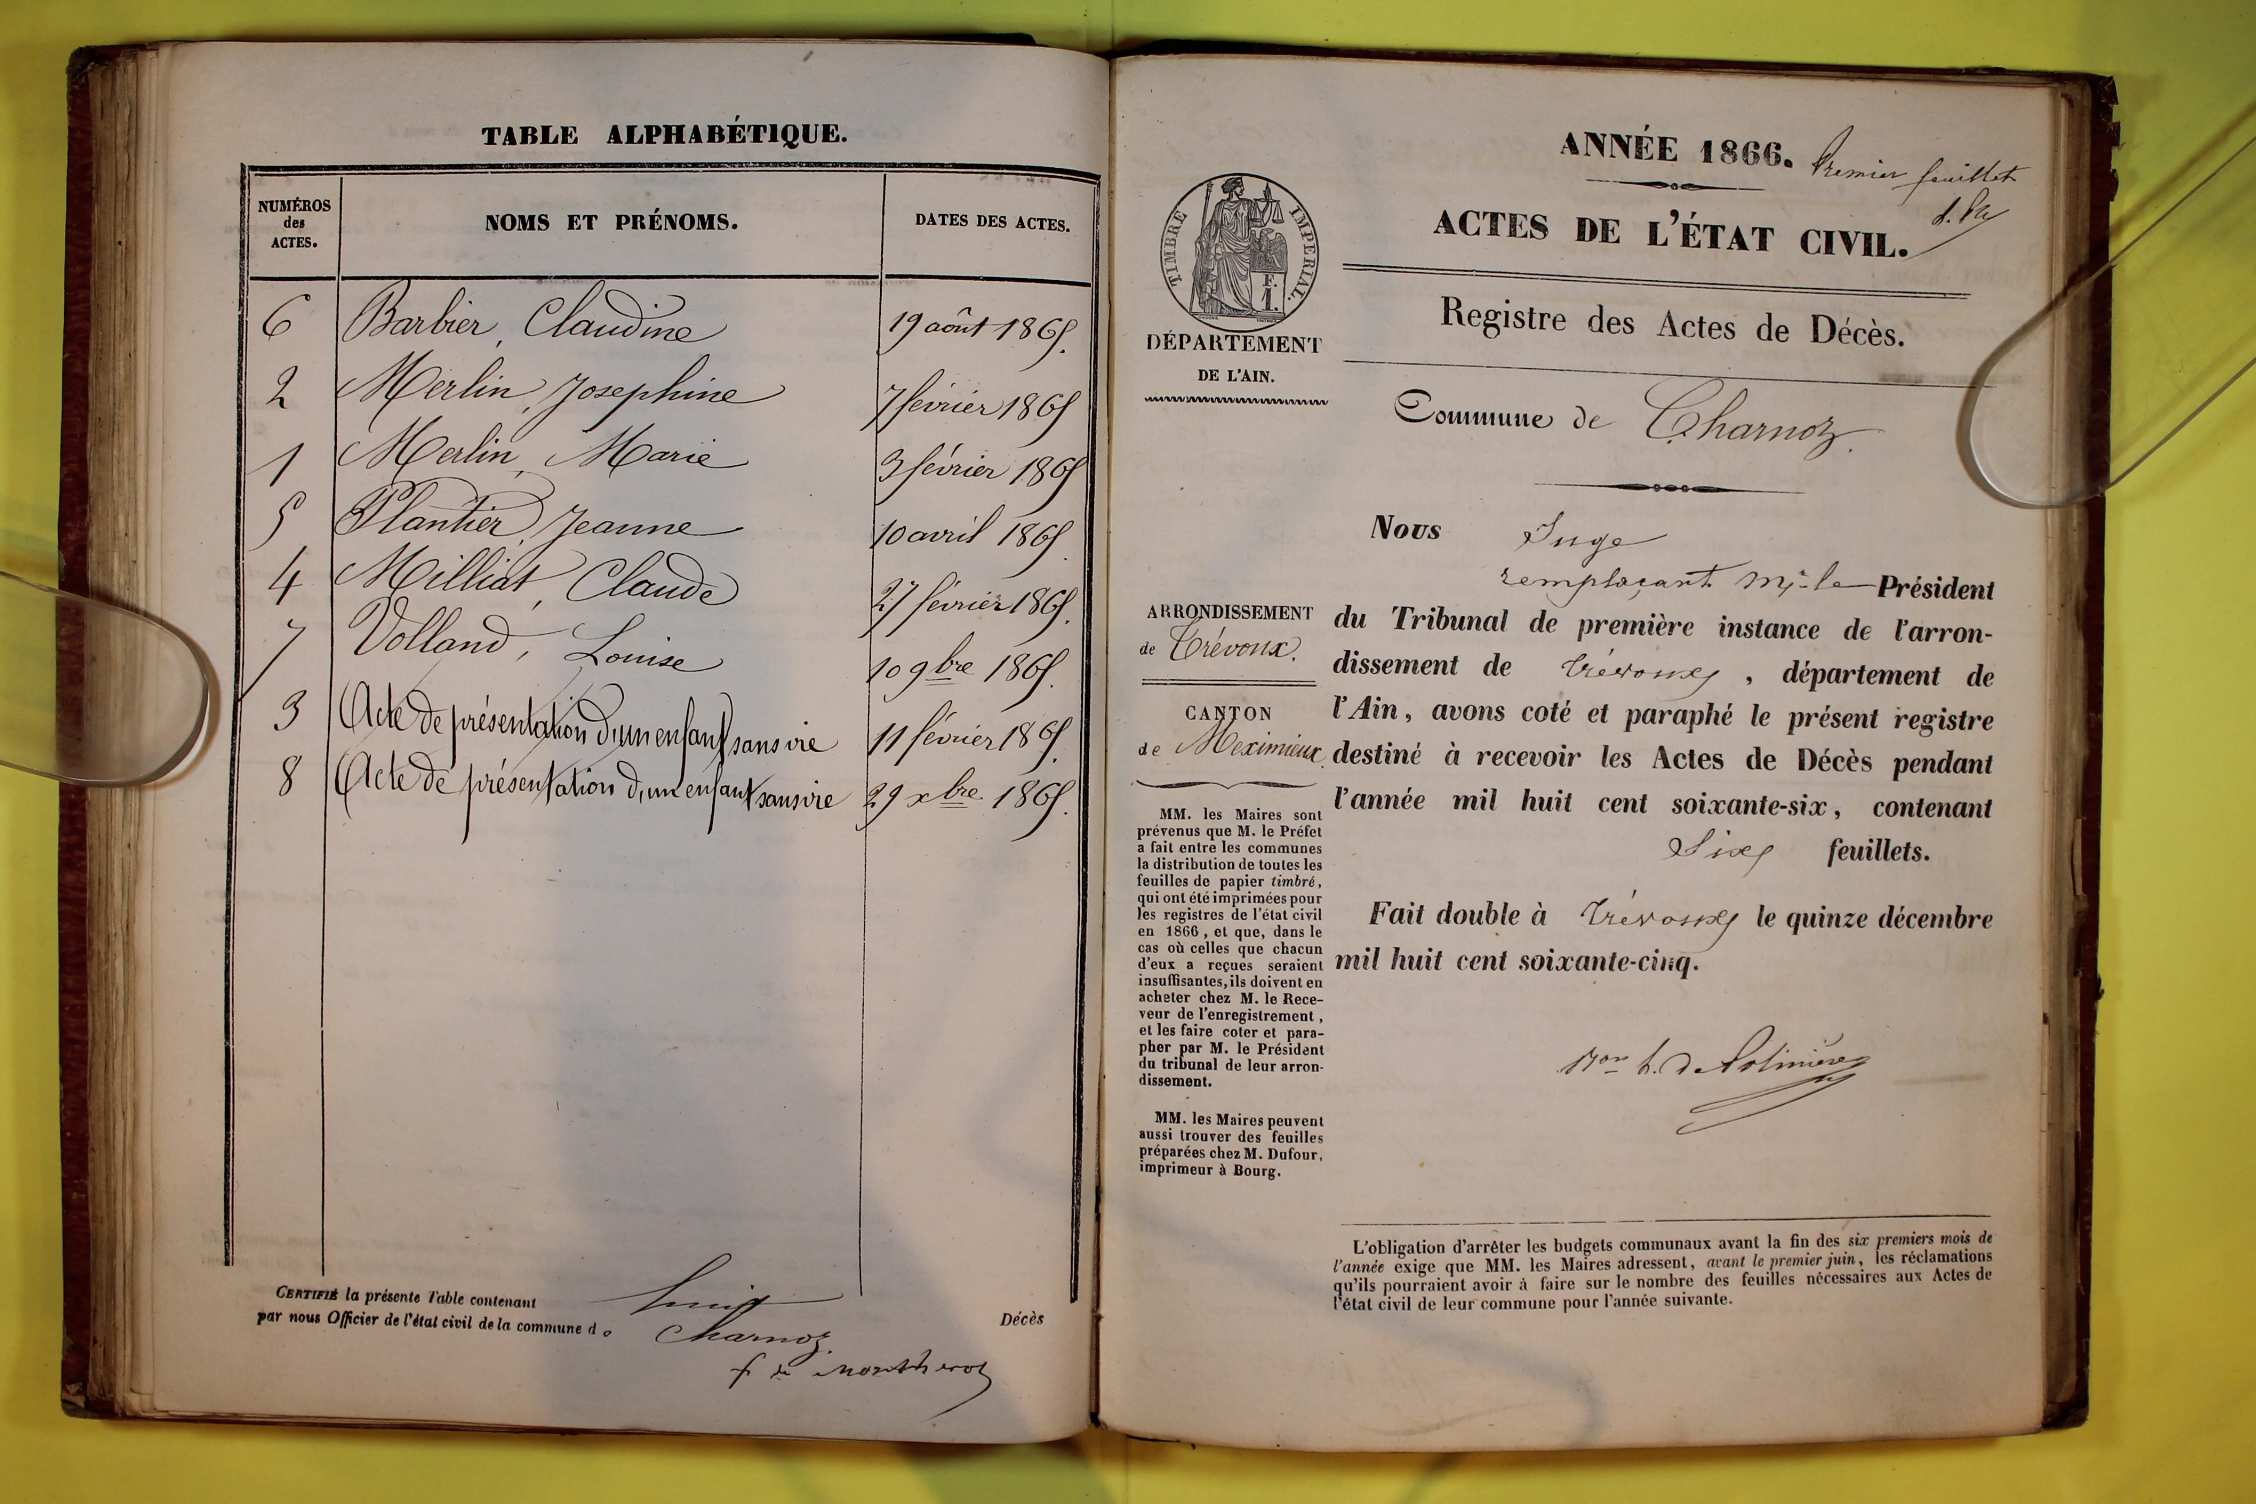 TABLE ALPHABÉTIQUE.
NUMÉROS des ACTES.
NOMS ET PRÉNOMS.
DATES DES ACTES.
6 Barbier, Claudine 19 août 1865.
2 Merlin, Josephine 7 février 1865
1 Merlin, Marie 3 février 1865
5 Plantier, Jeanne 10 avril 1865
4 Milliat, Claude 27 février 1865.
7 Volland, Louise 10 9bre 1865.
3 Acte de présentation d'un enfant sans vie 11 février 1865.
8 Acte de présentation d'un enfant sans vie 29 xbre 1865.
CERTIFIÉ la présente Table contenant huit Décès
par nous Officier de l'état civil de la commune de Charnoz.
f de Montherot
ANNÉE 1866.
Premier feuillet
ACTES DE L'ÉTAT CIVIL.
TIMBRE IMPERIAL.
F. 1.
Registre des Actes de Décès.
DÉPARTEMENT
DE L'AIN.
Commune de Charnoz.
ARRONDISSEMENT
de Trévoux.
CANTON
de Meximieux.
MM. les Maires sont
prévenus que M. le Préfet
a fait entre les communes
la distribution de toutes les
feuilles de papier timbré,
qui ont été imprimées pour
les registres de l'état civil
en 1866, et que, dans le
cas où celles que chacun
d'eux a reçues seraient
insuffisantes, ils doivent en
acheter chez M. le Rece-
veur de l'enregistrement,
et les faire coter et para-
pher par M. le Président
du tribunal de leur arron-
dissement.
MM. les Maires peuvent
aussi trouver des feuilles
préparées chez M. Dufour,
imprimeur à Bourg.
Nous Juge
remplaçant Mr le Président
du Tribunal de première instance de l'arron-
dissement de Trévoux, département de
l'Ain, avons coté et paraphé le présent registre
destiné à recevoir les Actes de Décès pendant
l'année mil huit cent soixante-six, contenant
Six feuillets.
Fait double à Trévoux le quinze décembre
mil huit cent soixante-cinq.
L'obligation d'arrêter les budgets communaux avant la fin des six premiers mois de
l'année exige que MM. les Maires adressent, avant le premier juin, les réclamations
qu'ils pourraient avoir à faire sur le nombre des feuilles nécessaires aux Actes de
l'état civil de leur commune pour l'année suivante.